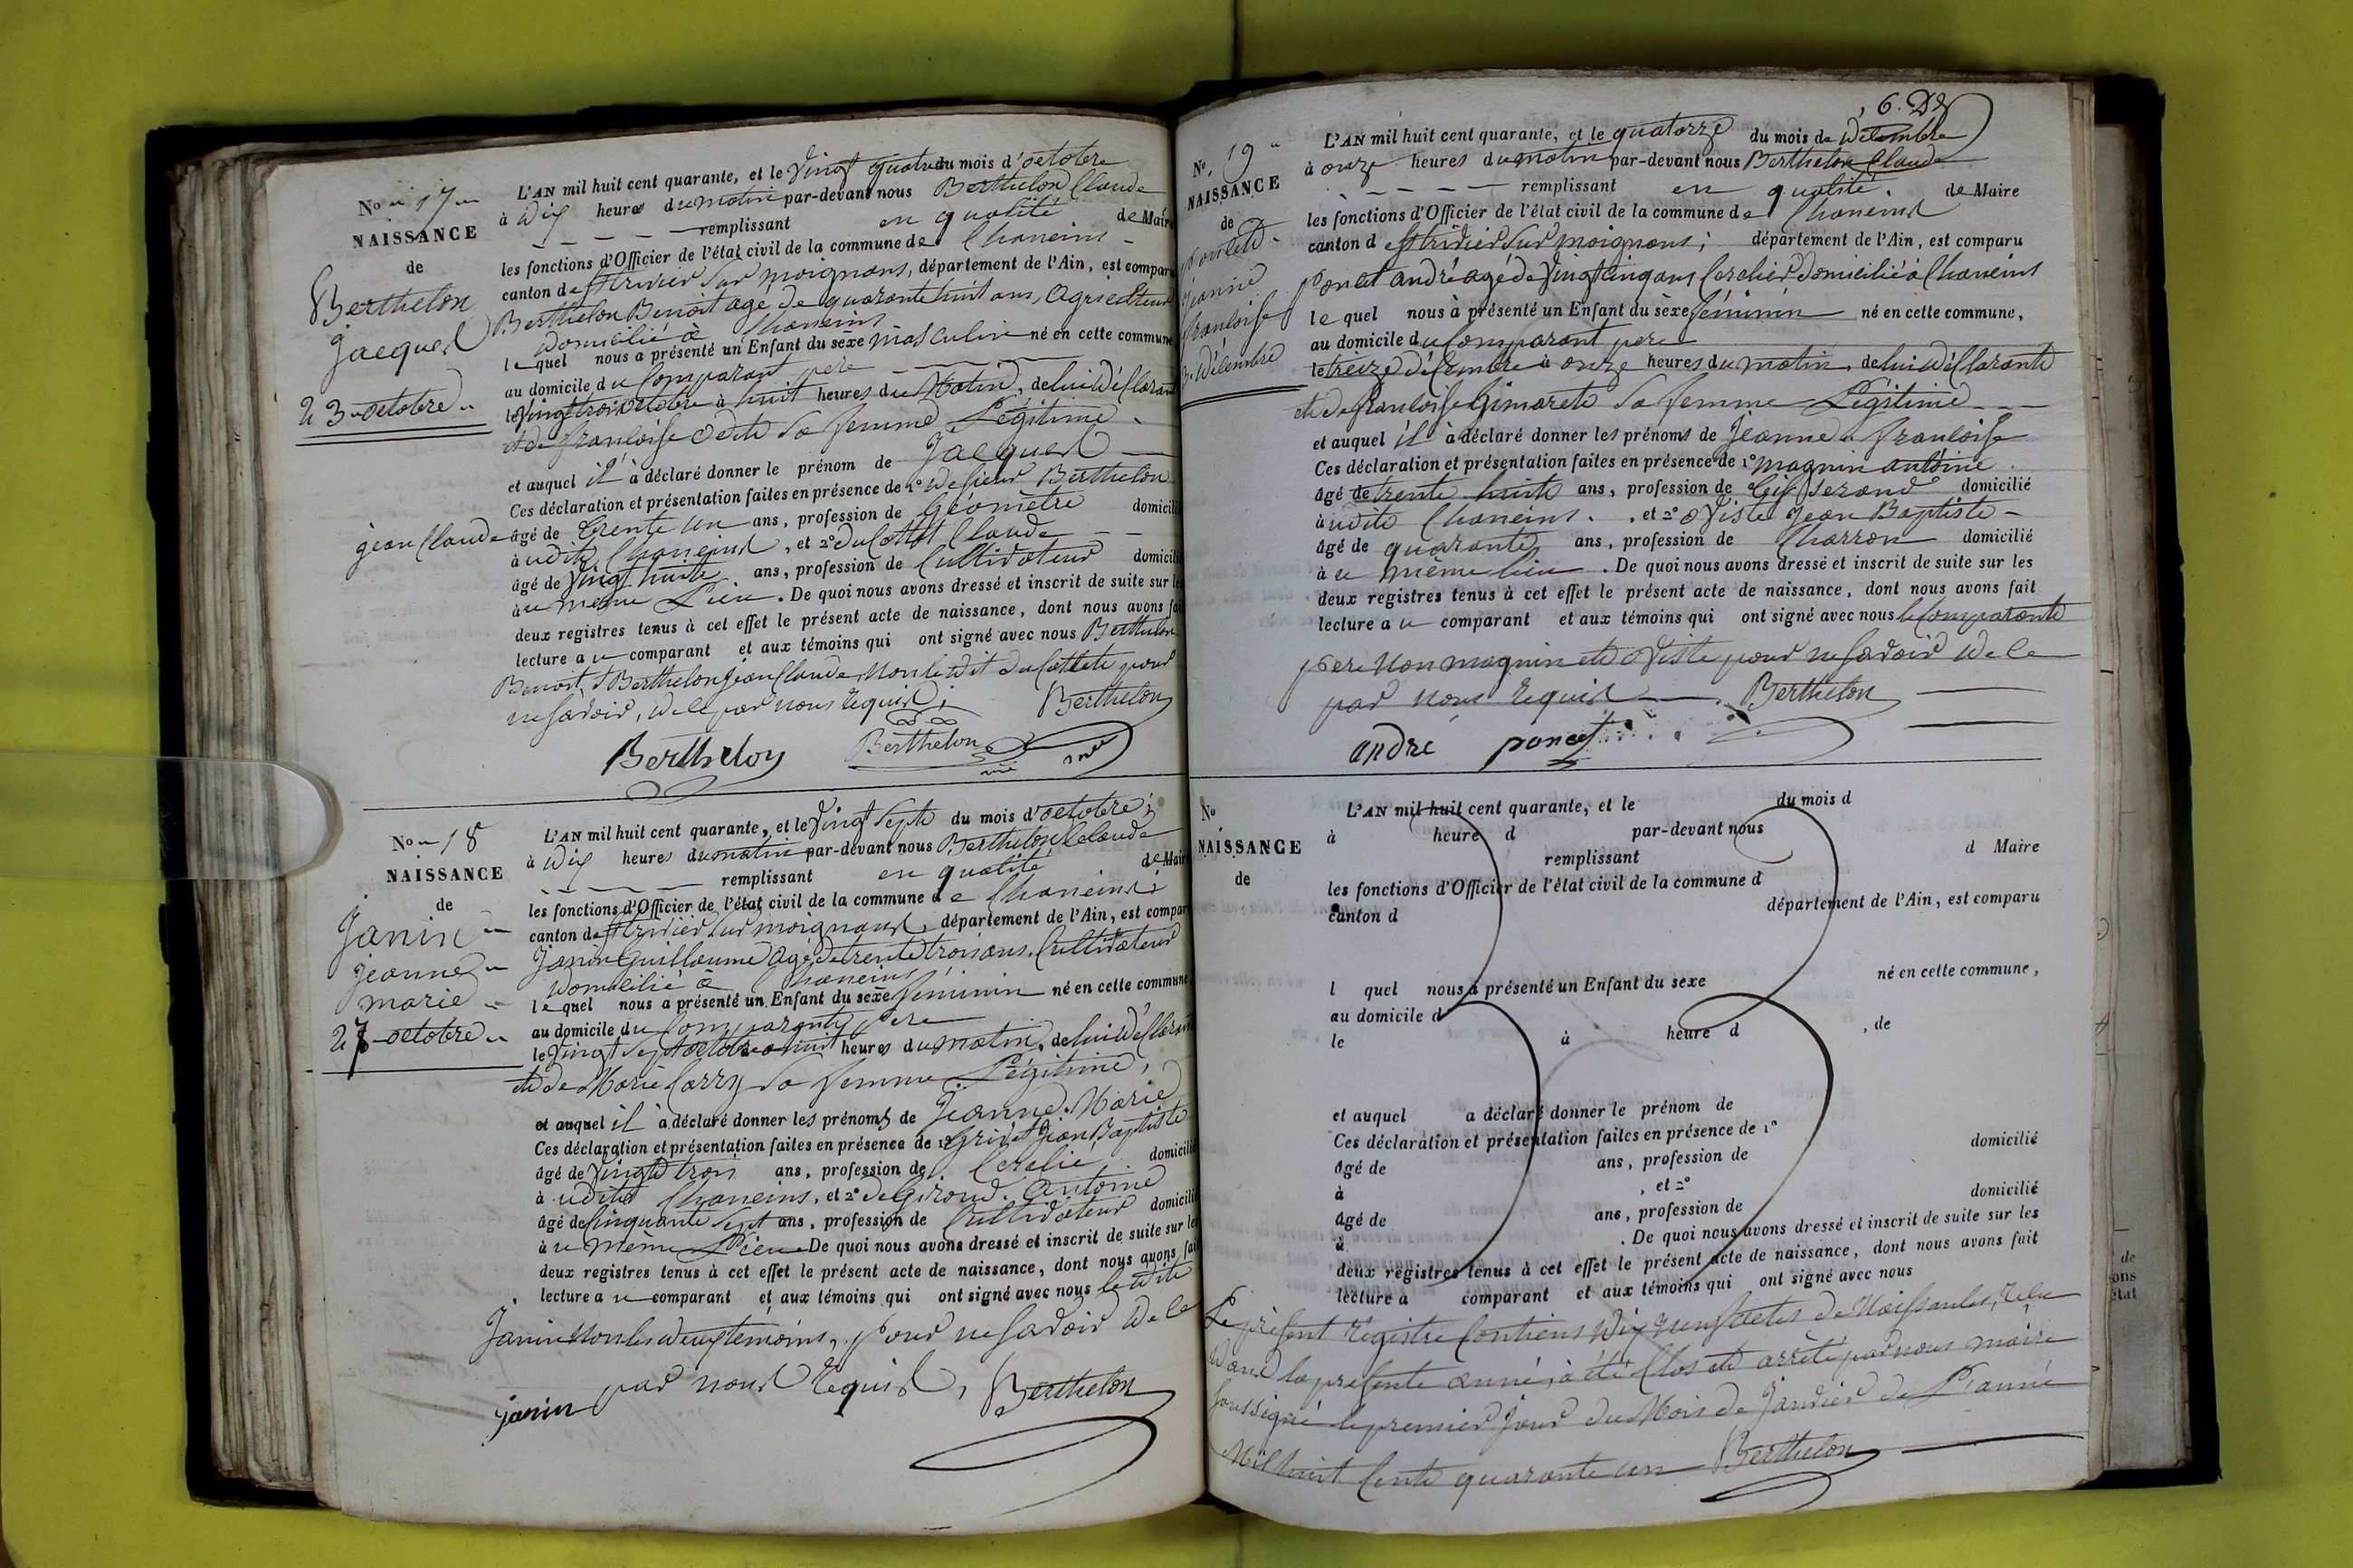 No 17
NAISSANCE
de
Berthelon
Jacques
23 octobre
L'AN mil huit cent quarante, et le Vingt quatre du mois d'octobre
à dix heures du matin par-devant nous Berthelon Claude
remplissant en qualité de Maire
les fonctions d'Officier de l'état civil de la commune de Chaneins
canton de St trivier Sur moignans, département de l'Ain, est comparu
Berthelon Benoit agé de quarante huit ans, Agriculteur
domicilié à Chaneins
lequel nous a présenté un Enfant du sexe masculin né en cette commune
au domicile du Comparant père
le vingt trois octobre à huit heures du Matin, de lui déclarant
et de françoise Odite Sa femme Légitime
et auquel il à déclaré donner le prénom de Jacques
Ces déclaration et présentation faites en présence de 1° de Sieur Berthelon
jean Claude âgé de trente un ans, profession de Géomètre domicilié
à udit Chaneins, et 2° du Cottet Claude
âgé de Vingt huit ans, profession de Cultivateur domicilié
à u même Lieu. De quoi nous avons dressé et inscrit de suite sur les
deux registres tenus à cet effet le présent acte de naissance, dont nous avons fait
lecture a u comparant et aux témoins qui ont signé avec nous Berthelon
Benoit & Berthelon jean Claude, Non le dit du Cottet pour
ne Savoir, de ce par nous requis;
Berthelon
Berthelon
Berthelon
No 18
NAISSANCE
de
Janin
jeanne
marie
27 octobre
L'AN mil huit cent quarante, et le Vingt Sept du mois d'octobre;
à dix heures du matin par-devant nous Berthelon Claude
remplissant en qualité de Maire
les fonctions d'Officier de l'état civil de la commune de Chaneins;
canton de St trivier Sur moignans, département de l'Ain, est comparu
Janin Guillaume âgé de trente trois ans, Cultivateur
domicilié à Chaneins
lequel nous a présenté un Enfant du sexe féminin né en cette commune
au domicile du Comparant père
le Vingt Sept octobre à huit heures du matin, de lui déclarant
et de Marie Carry Sa femme Légitime,
et auquel il à déclaré donner les prénoms de Jeanne Marie
Ces déclaration et présentation faites en présence de 1° Grivet Jean Baptiste
âgé de Vingt trois ans, profession de Cerclié domicilié
à udit Chaneins, et 2° de Giroud Antoine
âgé de Cinquante Sept ans, profession de Cultivateur domicilié
à u même Lieu De quoi nous avons dressé et inscrit de suite sur les
deux registres tenus à cet effet le présent acte de naissance, dont nous avons fait
lecture a u comparant et aux témoins qui ont signé avec nous le dit
Janin Non les deux témoins, pour ne Savoir de ce
par nous requis,
janin Berthelon
6. D
No 19
NAISSANCE
de
Poncet
Jeanne
françoise
13 décembre
L'AN mil huit cent quarante, et le quatorze du mois de décembre
à onze heures du matin par-devant nous Berthelon Claude
remplissant en qualité de Maire
les fonctions d'Officier de l'état civil de la commune de Chaneins
canton de St trivier Sur moignans; département de l'Ain, est comparu
Poncet andré agé de Vingt cinq ans Cerclier domicilié à Chaneins
lequel nous à présenté un Enfant du sexe féminin né en cette commune,
au domicile du Comparant père
le treize décembre à onze heures du matin, de lui déclarant
et de françoise Simaret Sa femme Légitime
et auquel il à déclaré donner les prénoms de Jeanne françoise
Ces déclaration et présentation faites en présence de 1° magnin antoine
âgé de trente huit ans, profession de tisserand domicilié
à udit Chaneins, et 2° Oviste Jean Baptiste
âgé de quarante ans, profession de Charron domicilié
à u même lieu. De quoi nous avons dressé et inscrit de suite sur les
deux registres tenus à cet effet le présent acte de naissance, dont nous avons fait
lecture a u comparant et aux témoins qui ont signé avec nous le Comparant
père Non magnin et Oviste pour ne Savoir de ce
par nous requis Berthelon
andré poncet
No
NAISSANCE
de
L'AN mil huit cent quarante, et le du mois d
à heure d par-devant nous
remplissant d Maire
les fonctions d'Officier de l'état civil de la commune d
canton d département de l'Ain, est comparu
l quel nous a présenté un Enfant du sexe né en cette commune,
au domicile d
le à heure d , de
et auquel a déclaré donner le prénom de
Ces déclaration et présentation faites en présence de 1°
âgé de ans, profession de domicilié
à , et 2°
âgé de ans, profession de domicilié
à . De quoi nous avons dressé et inscrit de suite sur les
deux registres tenus à cet effet le présent acte de naissance, dont nous avons fait
lecture a comparant et aux témoins qui ont signé avec nous
Le présent Régistre Contiens dix neuf actes de Naissances, reçu
dans la présente année, à été Clos et arrêté par nous maire
Soussigné le premier jour du Mois de Janvier de L'année
Mil huit Cent quarante un Berthelon
de
ons
état